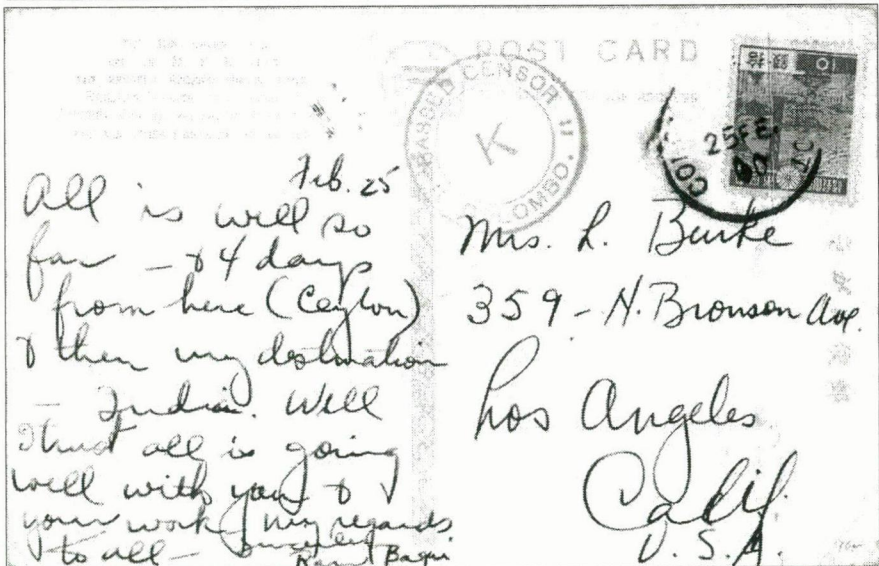 POST CARD
PASSED CENSOR 11
K
COLOMBO.
25 FE.
Feb. 25
All is well so
far – & 4 days
from here (Ceylon)
& then my destination
– India. Well
I trust all is going
well with you &
your work. My regards
to all – Sincerely
Bagui
Mrs. L. Burke
359 - N. Bronson Ave.
Los Angeles
Calif.
U. S. A.